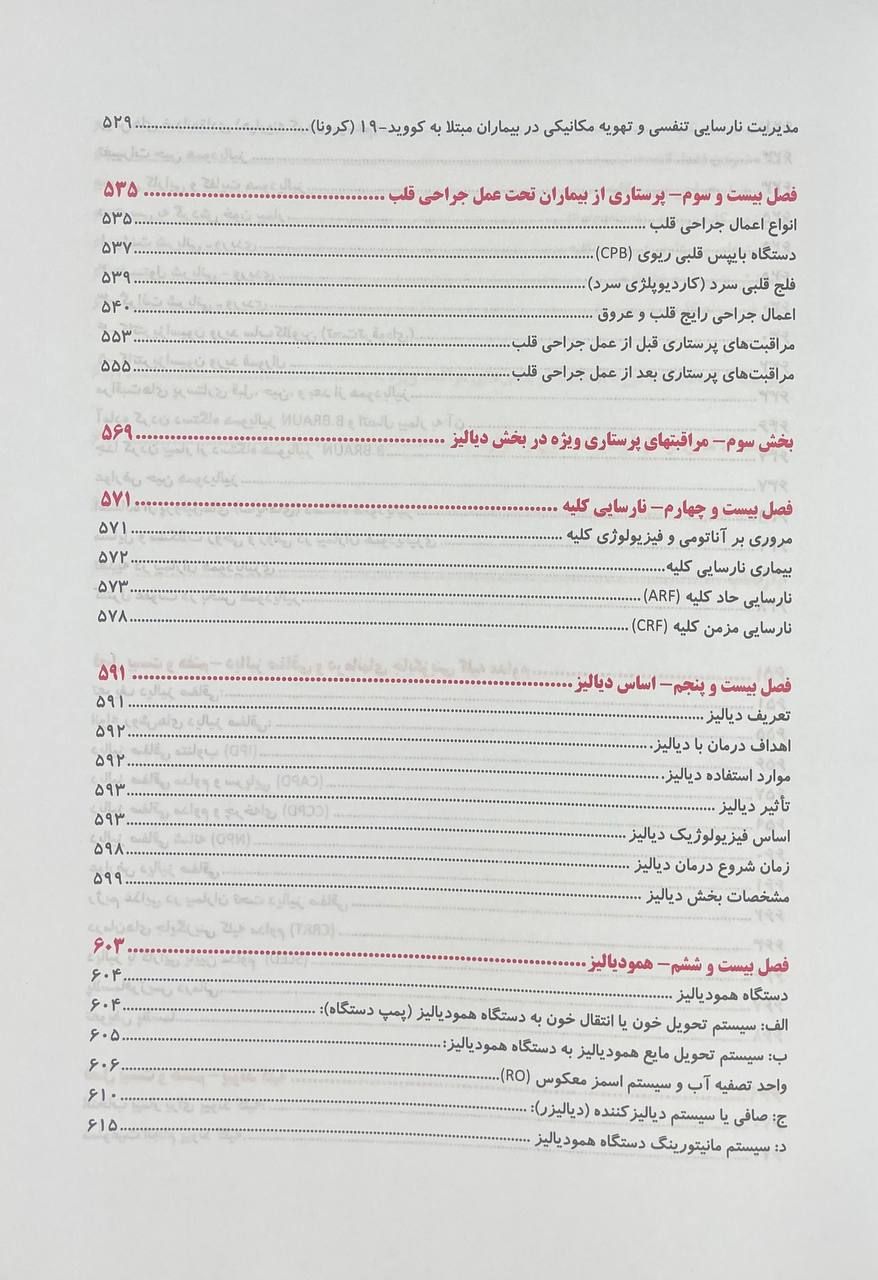 مدیریت نارسایی تنفسی و تهویه مکانیکی در بیماران مبتلا به کووید-۱۹ (کرونا) ........ ۵۲۹
فصل بیست و سوم- پرستاری از بیماران تحت عمل جراحی قلب ........ ۵۳۵
انواع اعمال جراحی قلب ........ ۵۳۵
دستگاه بایپس قلبی ریوی (CPB) ........ ۵۳۷
فلج قلبی سرد (کاردیوپلژی سرد) ........ ۵۳۹
اعمال جراحی رایج قلب و عروق ........ ۵۴۰
مراقبت‌های پرستاری قبل از عمل جراحی قلب ........ ۵۵۳
مراقبت‌های پرستاری بعد از عمل جراحی قلب ........ ۵۵۵
بخش سوم- مراقبتهای پرستاری ویژه در بخش دیالیز ........ ۵۶۹
فصل بیست و چهارم- نارسایی کلیه ........ ۵۷۱
مروری بر آناتومی و فیزیولوژی کلیه ........ ۵۷۱
بیماری نارسایی کلیه ........ ۵۷۲
نارسایی حاد کلیه (ARF) ........ ۵۷۳
نارسایی مزمن کلیه (CRF) ........ ۵۷۸
فصل بیست و پنجم- اساس دیالیز ........ ۵۹۱
تعریف دیالیز ........ ۵۹۱
اهداف درمان با دیالیز ........ ۵۹۲
موارد استفاده دیالیز ........ ۵۹۲
تأثیر دیالیز ........ ۵۹۳
اساس فیزیولوژیک دیالیز ........ ۵۹۳
زمان شروع درمان دیالیز ........ ۵۹۸
مشخصات بخش دیالیز ........ ۵۹۹
فصل بیست و ششم- همودیالیز ........ ۶۰۳
دستگاه همودیالیز ........ ۶۰۴
الف: سیستم تحویل خون یا انتقال خون به دستگاه همودیالیز (پمپ دستگاه): ........ ۶۰۴
ب: سیستم تحویل مایع همودیالیز به دستگاه همودیالیز: ........ ۶۰۵
واحد تصفیه آب و سیستم اسمز معکوس (RO) ........ ۶۰۶
ج: صافی یا سیستم دیالیزکننده (دیالیزر): ........ ۶۱۰
د: سیستم مانیتورینگ دستگاه همودیالیز ........ ۶۱۵